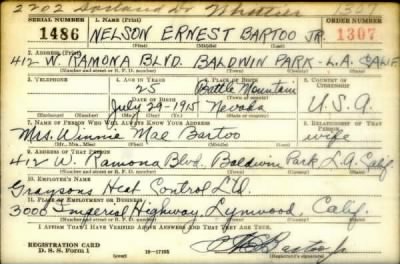 2202 Dr Whittier 1307
SERIAL NUMBER 1. NAME (Print) ORDER NUMBER
1486 NELSON ERNEST BARTOO JR. 1307
(First) (Middle) (Last)
2. ADDRESS (Print)
412 W. RAMONA BLVD. BALDWIN PARK - L.A. CALIF
(Number and street or R. F. D. number) (Town) (County) (State)
3. TELEPHONE 4. AGE IN YEARS 5. PLACE OF BIRTH 6. COUNTRY OF CITIZENSHIP
25 Battle Mountain
DATE OF BIRTH (Town or county)
July 29-1915 Nevada U.S.A.
(Exchange) (Number) (Mo.) (Day) (Yr.) (State or country)
7. NAME OF PERSON WHO WILL ALWAYS KNOW YOUR ADDRESS 8. RELATIONSHIP OF THAT PERSON
Mrs. Winnie Mae Bartoo wife
(Mr., Mrs., Miss) (First) (Middle) (Last)
9. ADDRESS OF THAT PERSON
412 W. Ramona Blvd. Baldwin Park L.A. Calif.
(Number and street or R. F. D. number) (Town) (County) (State)
10. EMPLOYER'S NAME
Graysons Heat Control Ltd.
11. PLACE OF EMPLOYMENT OR BUSINESS
3000 Imperial Highway, Lynwood Calif.
(Number and street or R. F. D. number) (Town) (County) (State)
I AFFIRM THAT I HAVE VERIFIED ABOVE ANSWERS AND THAT THEY ARE TRUE.
REGISTRATION CARD
D. S. S. Form 1 16-17105 (Registrant's signature)